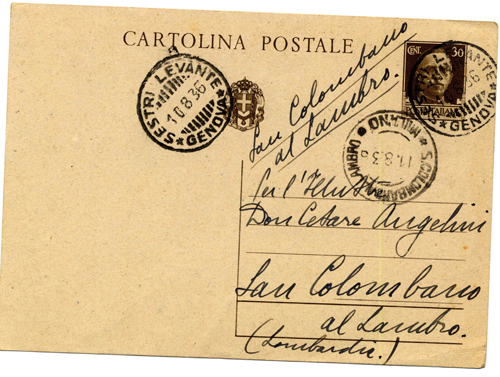 CARTOLINA POSTALE
CENT. 30
SESTRI LEVANTE
* GENOVA *
10.8.36
LEVANTE
GENOVA
San Colombano
al Lambro.
S. COLOMBANO LAMBRO
* MILANO *
11.8.36
Per l'Illust.
Don Cesare Angelini
San Colombano
al Lambro.
(Lombardia.)